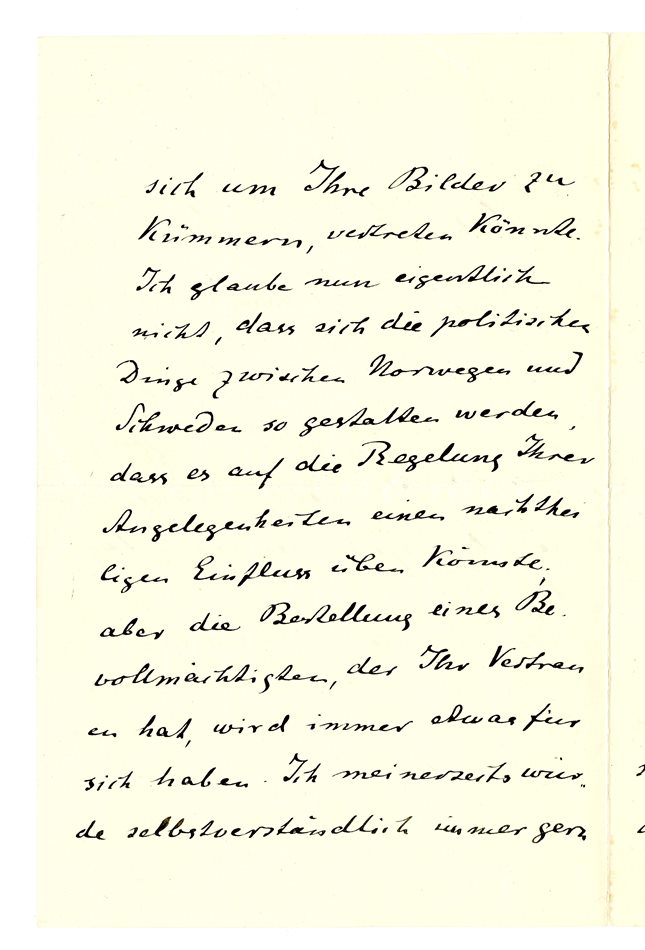 sich um Ihre Bilder zu
kümmern, vertreten könnte.
Ich glaube nun eigentlich
nicht, dass sich die politischen
Dinge zwischen Norwegen und
Schweden so gestalten werden,
dass es auf die Regelung Ihrer
Angelegenheiten einen nachthei
ligen Einfluss üben könnte;
aber die Bestellung eines Be-
vollmächtigten, der Ihr Vertrau
en hat, wird immer etwas für
sich haben. Ich meinerseits wür-
de selbstverständlich immer gern